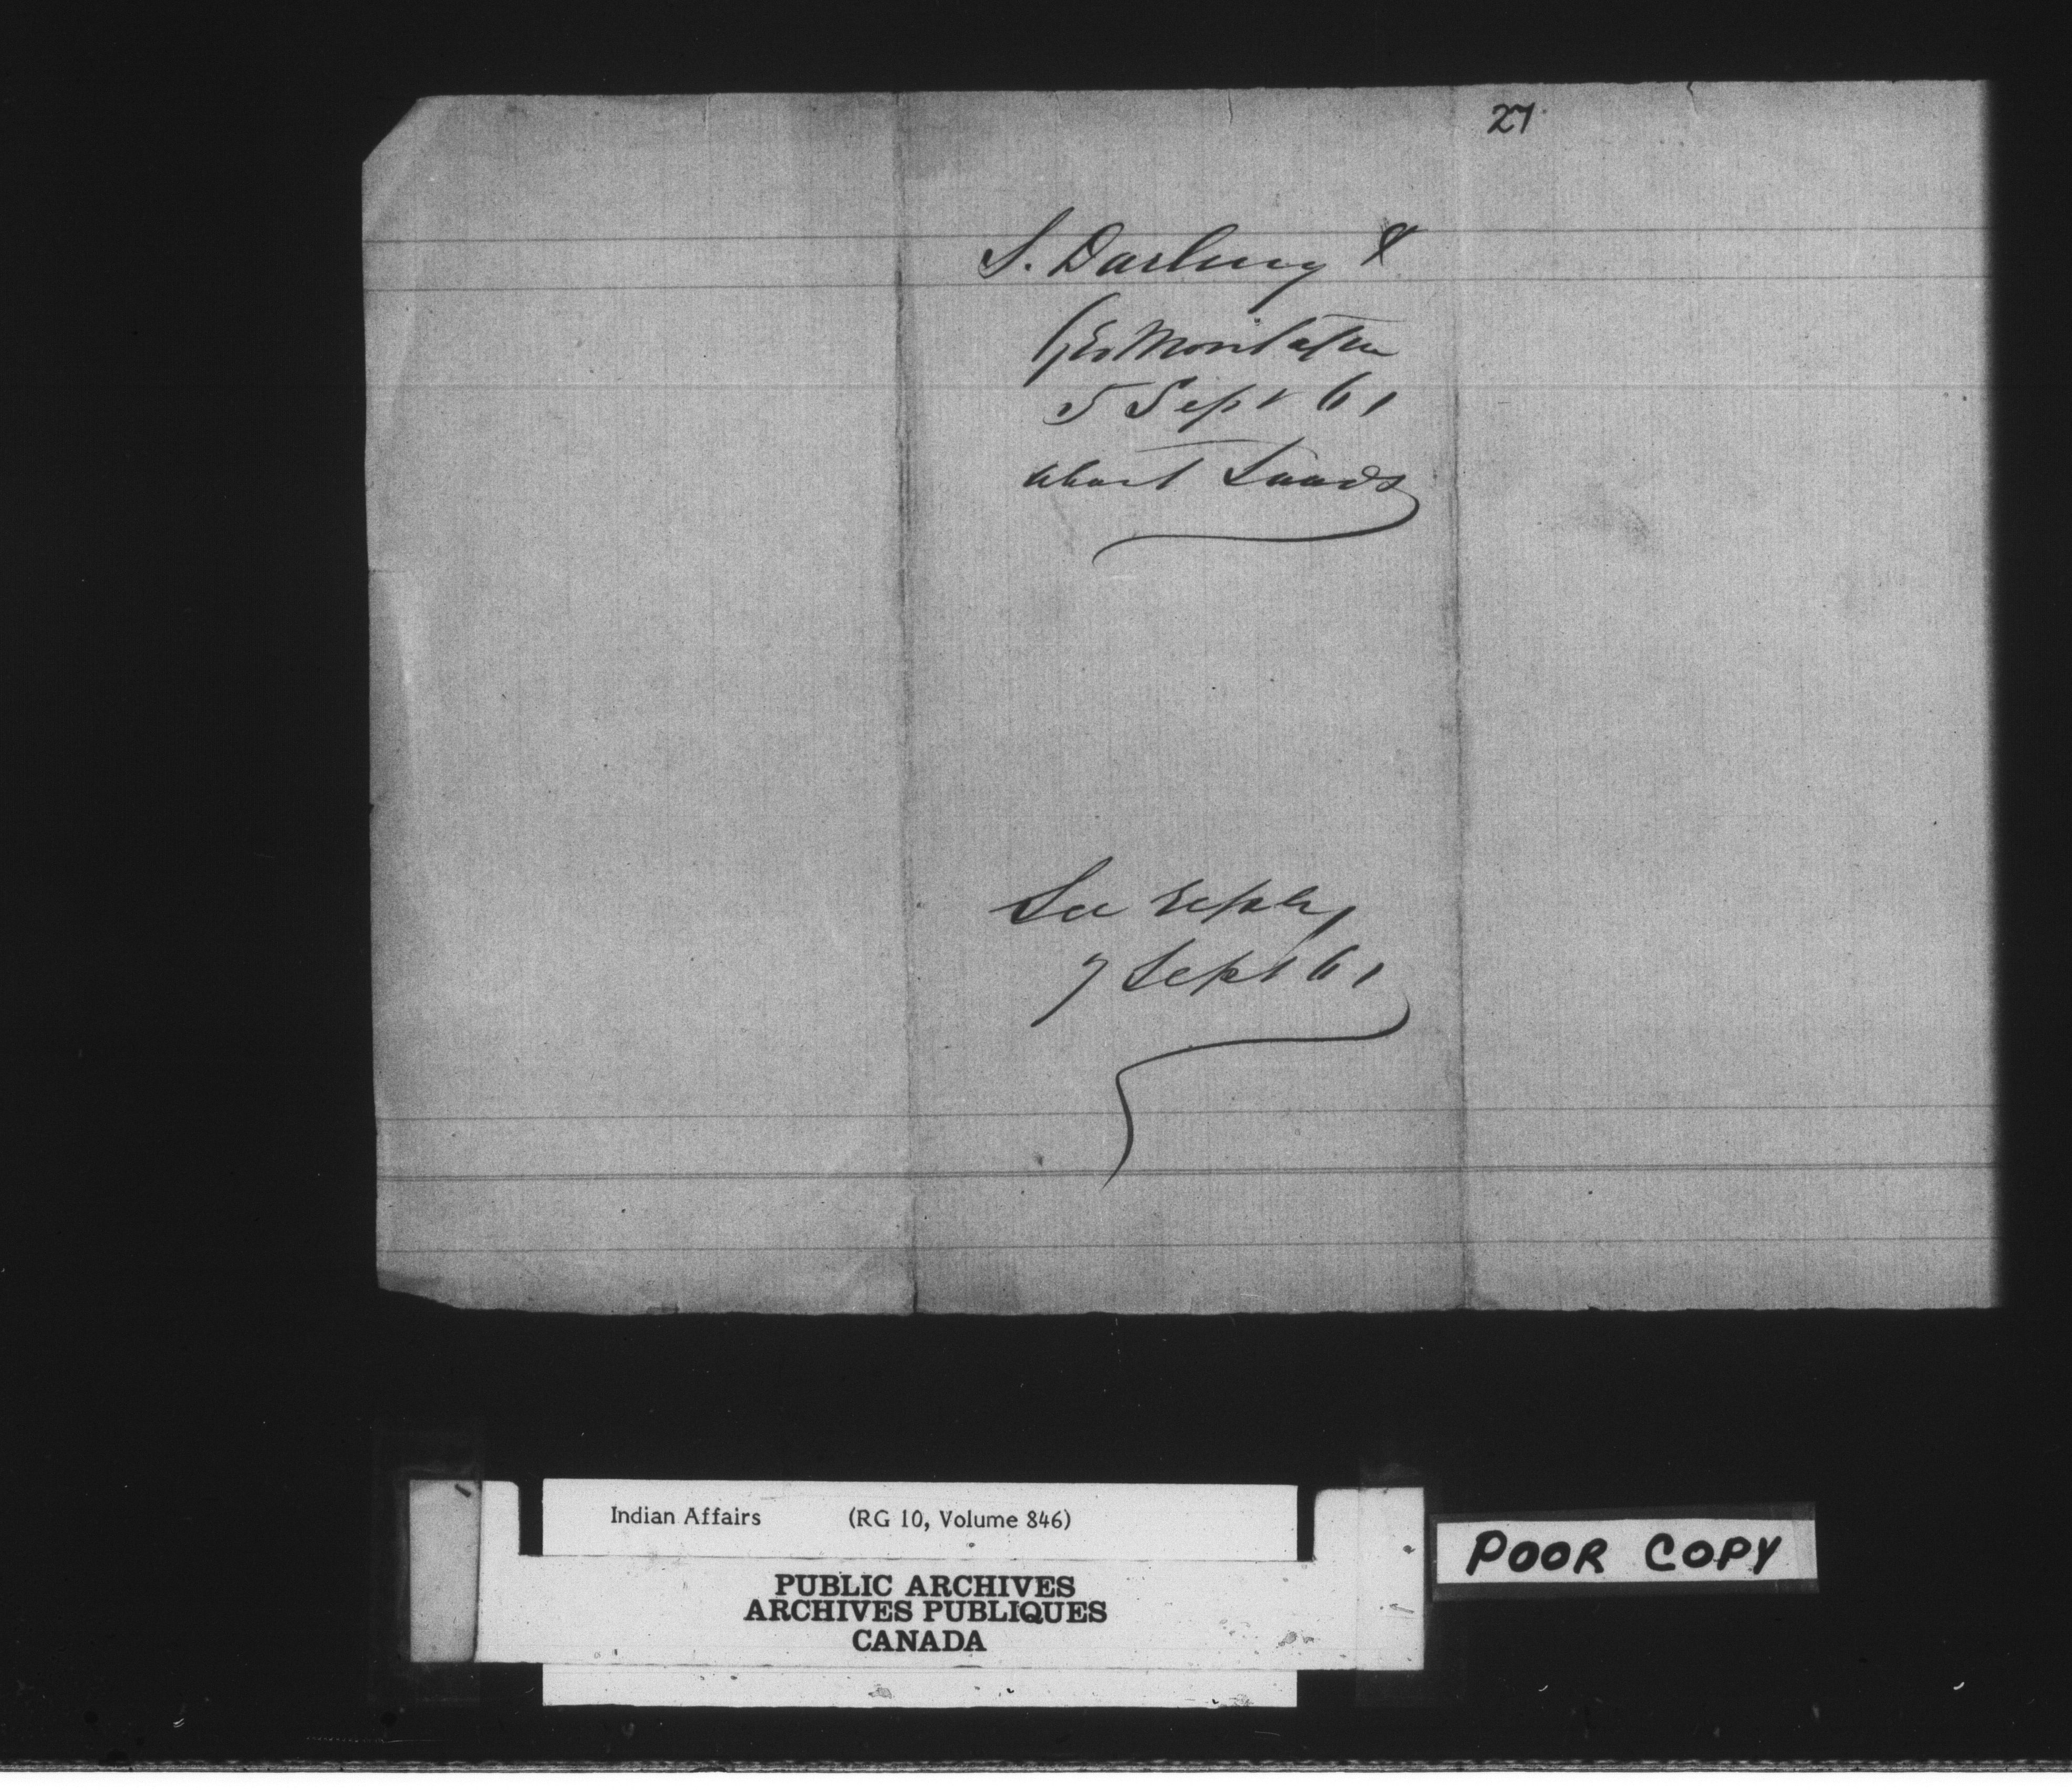 27
S. Darling &
Geo
5 Sept 61
about Lands
See reply
7 Sept 61
Indian Affairs (RG 10, Volume 846)
PUBLIC ARCHIVES
ARCHIVES PUBLIQUES
CANADA
POOR COPY